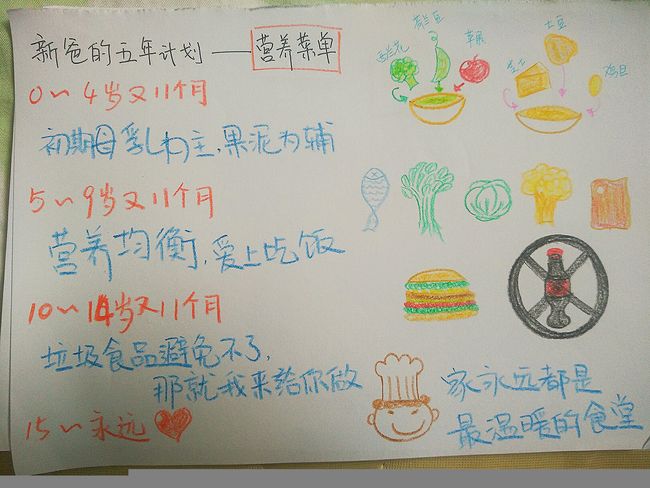 新爸的五年计划——营养菜单
0～4岁又11个月
初期母乳为主,果泥为辅
5～9岁又11个月
营养均衡,爱上吃饭
10～14岁又11个月
垃圾食品避免不了,
那就我来给你做
15～永远
西兰花
荷兰豆
苹果
芝士
土豆
鸡蛋
家永远都是
最温暖的食堂